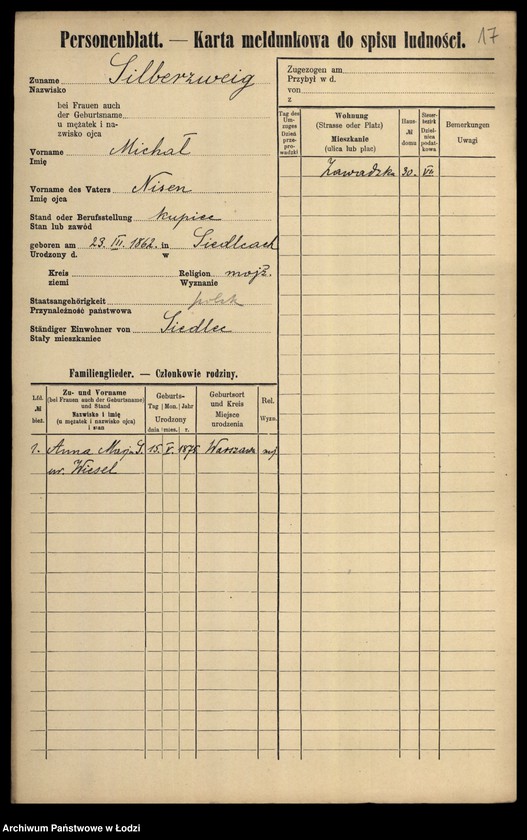 Personenblatt. — Karta meldunkowa do spisu ludności.
17
Zuname Silberzweig
Nazwisko
bei Frauen auch
der Geburtsname
u mężatek i na-
zwisko ojca
Vorname Michał
Imię
Vorname des Vaters Nisen
Imię ojca
Stand oder Berufsstellung kupiec
Stan lub zawód
geboren am 23. III. 1862. in Siedlcach
Urodzony d. w
Kreis Religion mojż.
ziemi Wyznanie
Staatsangehörigkeit polsk
Przynależność państwowa
Ständiger Einwohner von Siedlec
Stały mieszkaniec
Familienglieder. — Członkowie rodziny.
Lfd.
№
bież.
Zu- und Vorname
(bei Frauen auch der Geburtsname)
und Stand
Nazwisko i imię
(u mężatek i nazwisko ojca)
i stan
Geburts-
Tag Mon. Jahr
Urodzony
dnia mies. r.
Geburtsort
und Kreis
Miejsce
urodzenia
Rel.
Wyzn.
1. Anna Marja S. 15. V. 1875 Warszawa mj
ur. Wiesel
Zugezogen am
Przybył w d.
von
z
Tag des
Um-
zuges
Dzień
prze-
prowadzki
Wohnung
(Strasse oder Platz)
Mieszkanie
(ulica lub plac)
Haus-
№
domu
Steuer-
bezirk
Dziel-
nica
podat-
kowa
Bemerkungen
Uwagi
Zawadzka 30. VII
Archiwum Państwowe w Łodzi